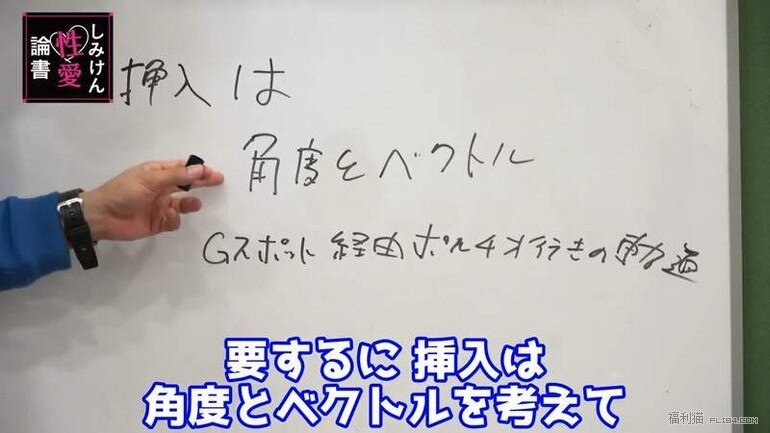 しみけん
性愛
論書
挿入は
角度とベクトル
Gスポット経由ポルチオ行きの動道
要するに 挿入は
角度とベクトルを考えて
福利猫 FLI84.COM